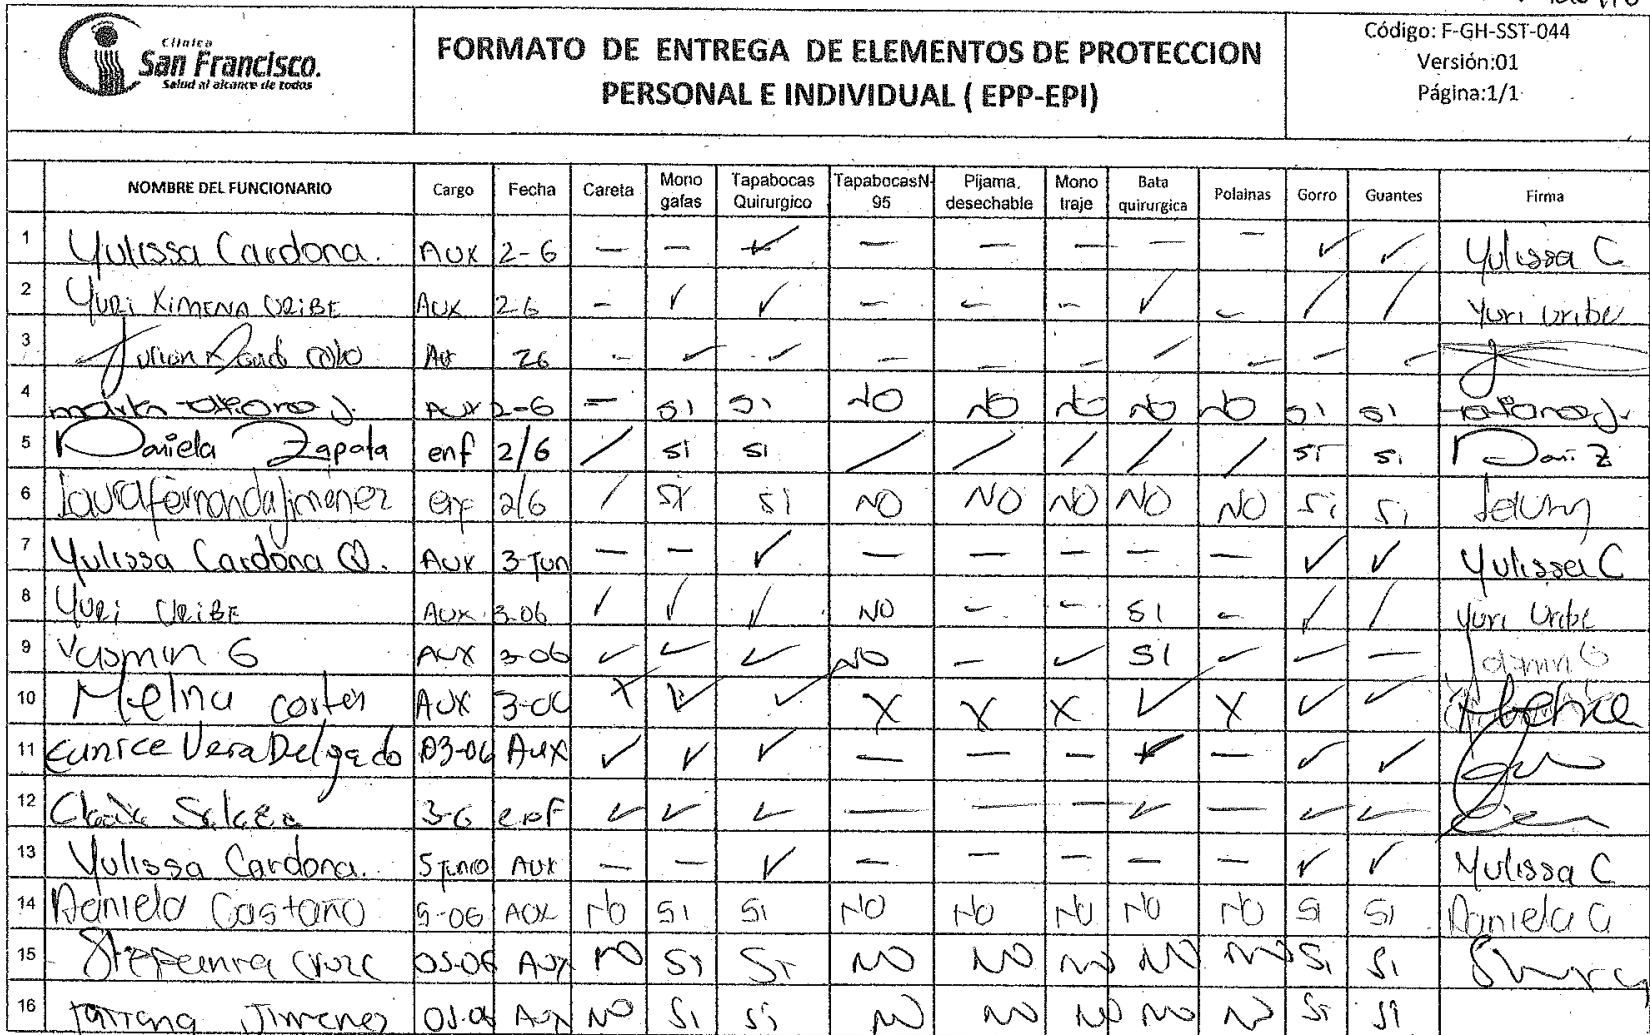 Clínica
San Francisco.
Salud al alcance de todos
FORMATO DE ENTREGA DE ELEMENTOS DE PROTECCION
PERSONAL E INDIVIDUAL ( EPP-EPI)
Código: F-GH-SST-044
Versión:01
Página:1/1
NOMBRE DEL FUNCIONARIO Cargo Fecha Careta Mono gafas Tapabocas Quirurgico TapabocasN-95 Pijama, desechable Mono traje Bata quirurgica Polainas Gorro Guantes Firma
1 Yulissa Cardona. Aux 2-6 — — ✓ — — — — — ✓ ✓ Yulissa C
2 Yuri Ximena Uribe Aux 2-6 - ✓ ✓ - - - ✓ - / / Yuri Uribe
3 Aux 26 - ✓ ✓ - - - ✓ - - -
4 Aux 2-6 — si si NO NO NO NO NO si si
5 Daniela Zapata enf 2/6 / si si / / / / / si si Dani Z
6 Laura fernanda Jimenez enf 2/6 / si si NO NO NO NO NO si si
7 Yulissa Cardona Q. Aux 3-Jun — — ✓ — — — — — ✓ ✓ Yulissa C
8 Yuri Uribe Aux. 3-06 ✓ ✓ ✓ NO - - SI - / / Yuri Uribe
9 Yasmin G Aux 3-06 ✓ ✓ ✓ NO — ✓ SI ✓ ✓ — Yasmin G
10 Aux X ✓ ✓ X X X ✓ X ✓ ✓
11 Eunice Vera Delgado 03-06 Aux ✓ ✓ ✓ — — — ✓ — ✓ ✓
12 3-6 enf ✓ ✓ ✓ — — — ✓ — ✓ ✓
13 Yulissa Cardona. 5 junio Aux — — ✓ — — — — — ✓ ✓ Yulissa C
14 Daniela Castaño 5-06 Aux NO SI SI NO NO NO NO NO SI SI Daniela C
15 05-06 Aux NO Si Si NO NO NO NO NO Si Si
16 Tatiana Jimenez Aux NO Si Si NO NO NO NO NO Si Si